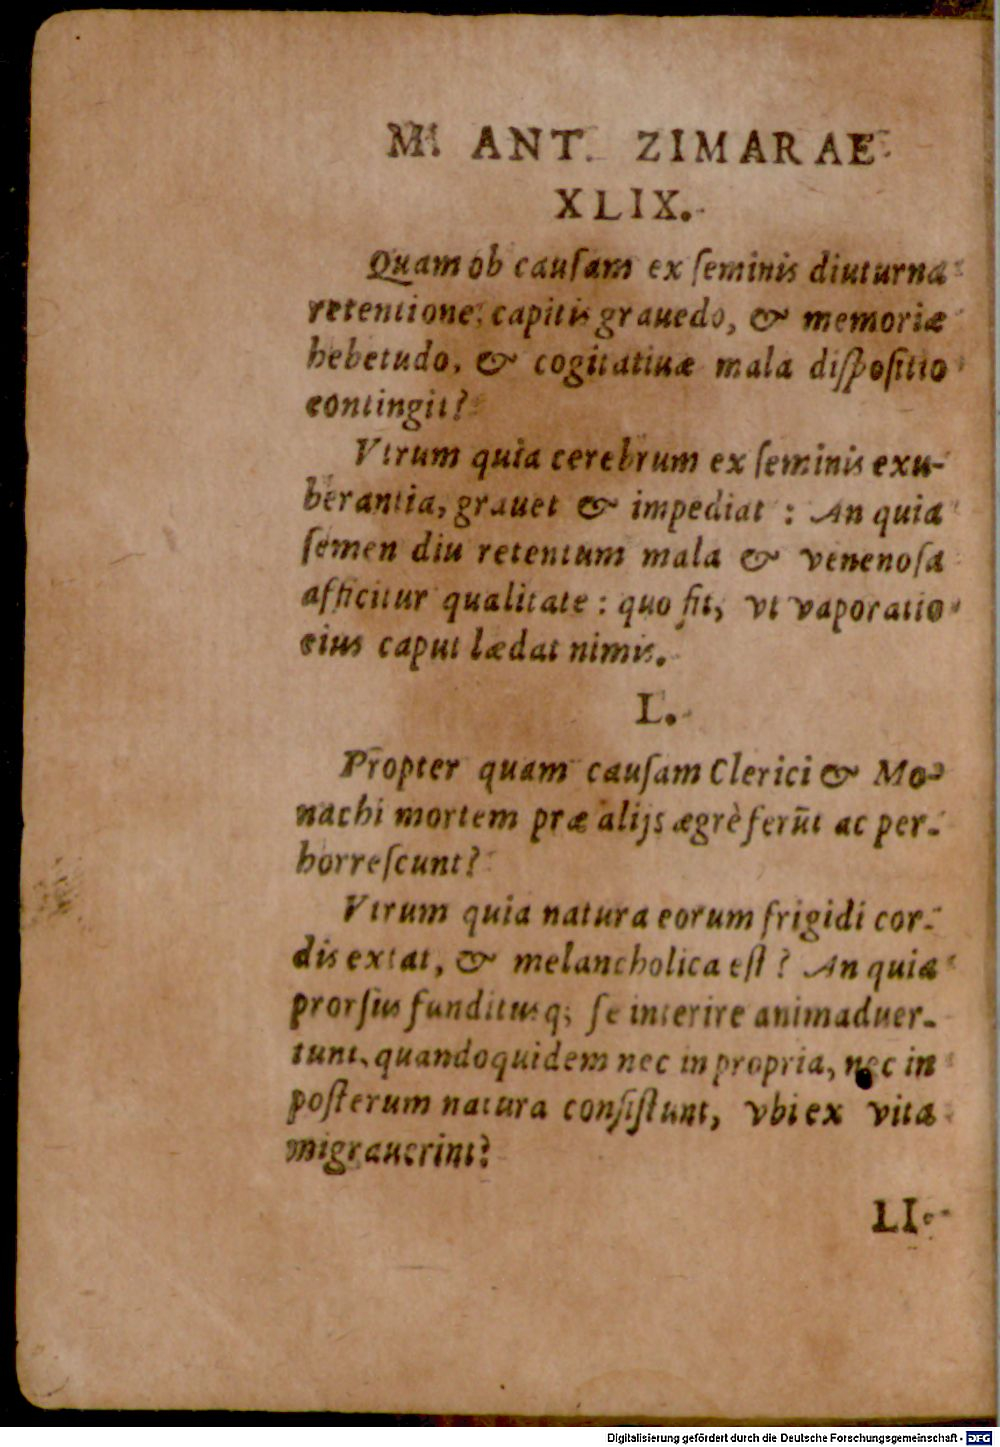 M. ANT. ZIMARAE
XLIX.
Quam ob cauſam ex ſeminis diuturna
retentione, capitis grauedo, & memoriæ
hebetudo, & cogitatiuæ mala diſpoſitio
contingit?
Vtrum quia cerebrum ex ſeminis exu-
berantia, grauet & impediat : An quia
ſemen diu retentum mala & venenoſa
afficitur qualitate : quo fit, vt vaporatio
eius caput lædat nimis.
L.
Propter quam cauſam Clerici & Mo-
nachi mortem præ alijs ægrè ferũt ac per-
horreſcunt?
Vtrum quia natura eorum frigidi cor-
dis extat, & melancholica eſt? An quia
prorſus funditusq; ſe interire animaduer-
tunt, quandoquidem nec in propria, nec in
poſterum natura conſiſtunt, vbi ex vita
migrauerint?
LI.
Digitalisierung gefördert durch die Deutsche Forschungsgemeinschaft - DFG